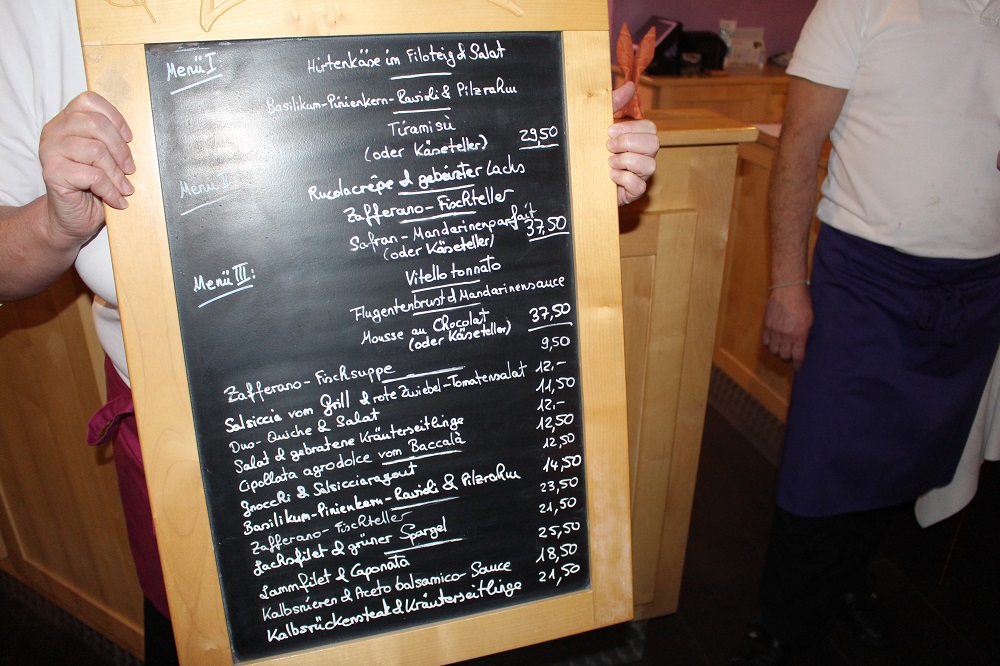 Menü I
Hirtenkäse im Filoteig & Salat
Basilikum-Pinienkern-Ravioli & Pilzrahm
Tiramisù
(oder Käseteller) 29,50
Menü II
Rucolacrêpe & gebeizter Lachs
Zafferano-Fischteller
Safran-Mandarinenparfait
(oder Käseteller) 37,50
Menü III:
Vitello tonnato
Flugentenbrust & Mandarinensauce
Mousse au Chocolat
(oder Käseteller) 37,50
Zafferano-Fischsuppe 9,50
Salsiccia vom Grill & rote Zwiebel-Tomatensalat 12.-
Duo-Quiche & Salat 11,50
Salat & gebratene Kräuterseitlinge 12.-
Cipollata agrodolce vom Baccalà 12,50
Gnocchi & Salsicciaragout 12,50
Basilikum-Pinienkern-Ravioli & Pilzrahm 14,50
Zafferano-Fischteller 23,50
Lachsfilet & grüner Spargel 21,50
Lammfilet & Caponata 25,50
Kalbsnieren & Aceto balsamico-Sauce 18,50
Kalbsrückensteak & Kräuterseitlinge 21,50